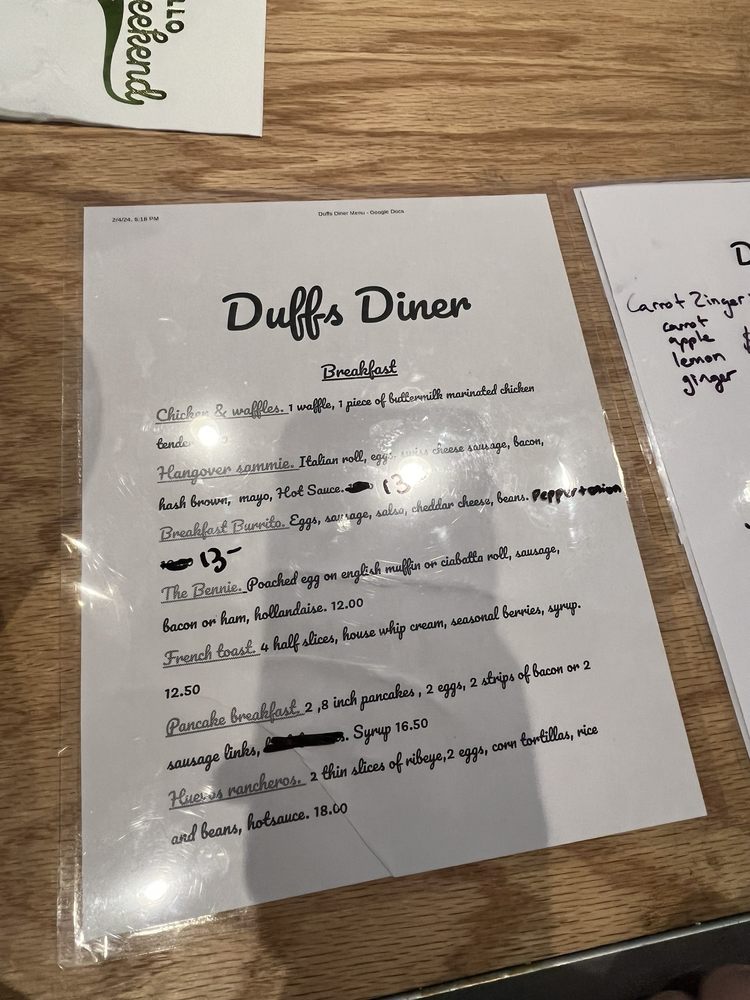 LLO
eekend
2/4/24, 6:16 PM
Duffs Diner Menu - Google Docs
Duffs Diner
Breakfast
Chicken & waffles. 1 waffle, 1 piece of buttermilk marinated chicken
tender
Hangover sammie. Italian roll, eggs, swiss cheese sausage, bacon,
hash brown, mayo, Hot Sauce. 13
Breakfast Burrito. Eggs, sausage, salsa, cheddar cheese, beans. Pepper+onion
13-
The Bennie. Poached egg on english muffin or ciabatta roll, sausage,
bacon or ham, hollandaise. 12.00
French toast. 4 half slices, house whip cream, seasonal berries, syrup.
12.50
Pancake breakfast. 2 ,8 inch pancakes , 2 eggs, 2 strips of bacon or 2
sausage links, s. Syrup 16.50
Huevos rancheros. 2 thin slices of ribeye,2 eggs, corn tortillas, rice
and beans, hotsauce. 18.00
D
Carrot Zinger
carrot
apple $
lemon
ginger